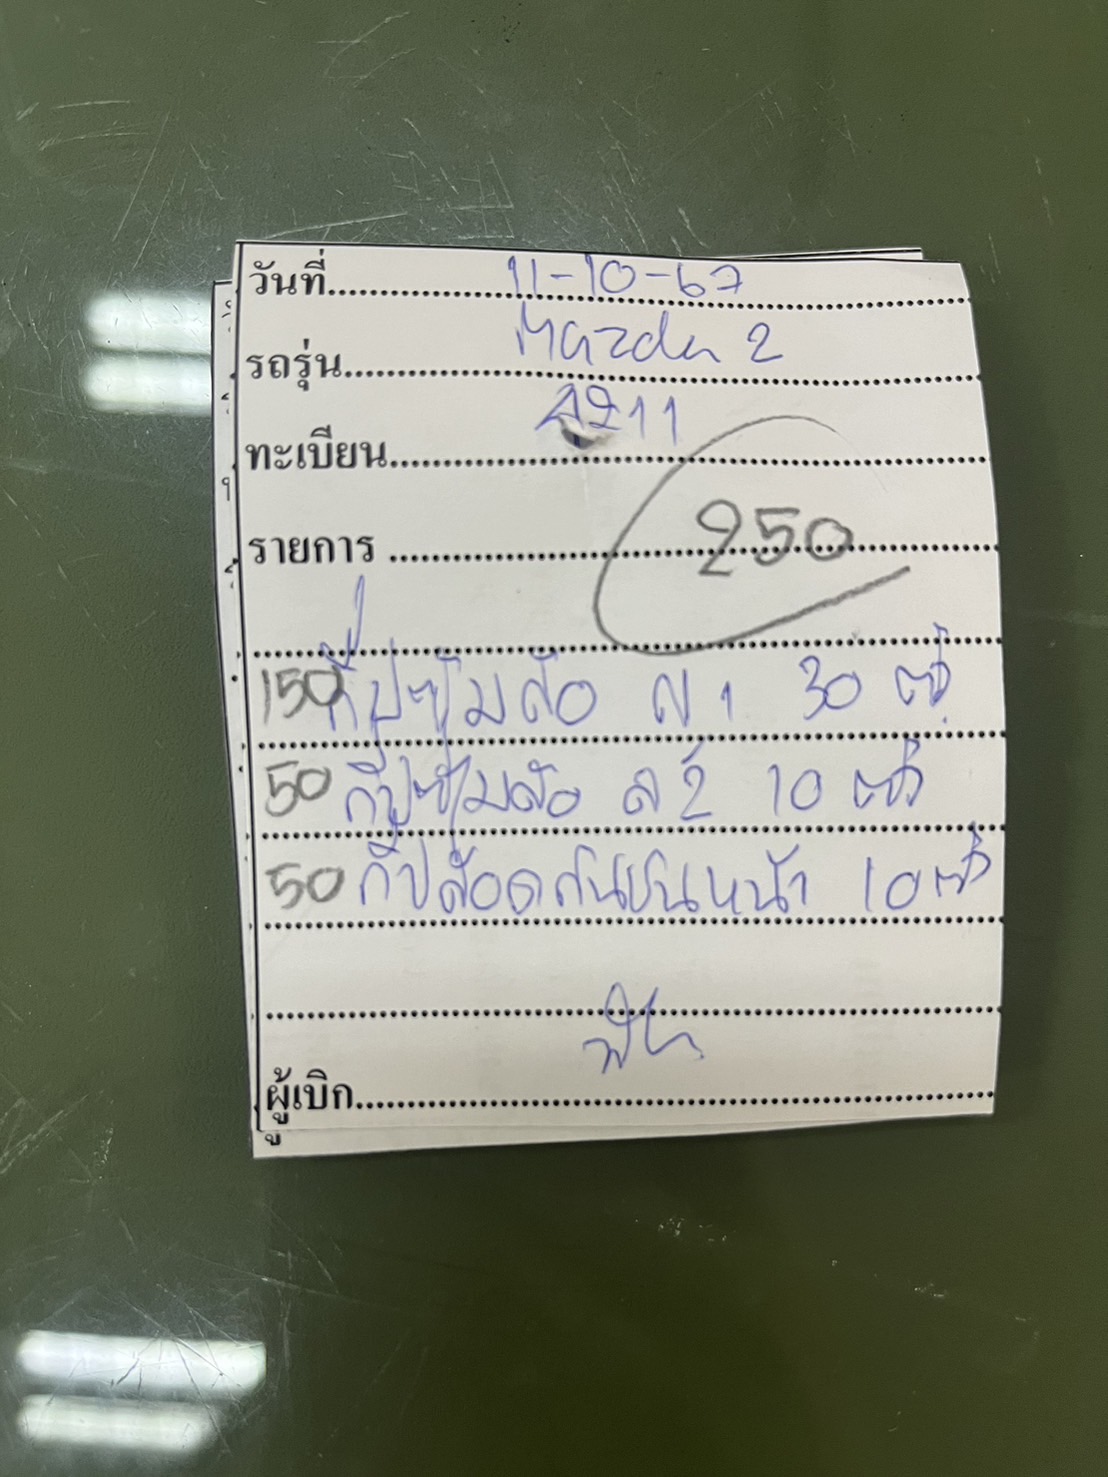 วันที่ 11-10-67
รถรุ่น Mazda 2
ทะเบียน 4211
รายการ 250
150 กี๊ปซุ้มล้อ ล1 30 ตัว
50 กิ๊ปซุ้มล้อ ล2 10 ตัว
50 กิ๊ปล๊อคกันชนหน้า 10 ตัว
ผู้เบิก